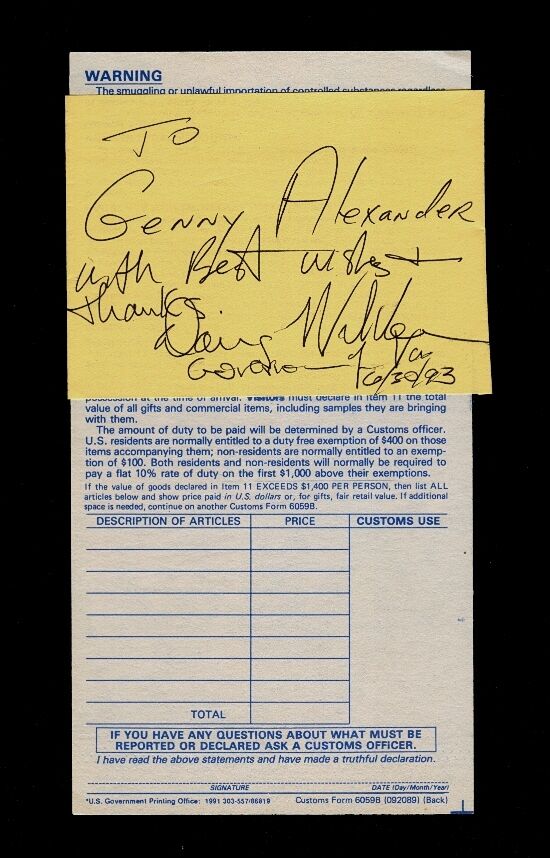 WARNING
The smuggling or unlawful importation of controlled substances regardless
To
Genny Alexander
with Best wishes +
thanks
Governor of Va
6/30/93
possession at the time of arrival. Visitors must declare in Item 11 the total
value of all gifts and commercial items, including samples they are bringing
with them.
The amount of duty to be paid will be determined by a Customs officer.
U.S. residents are normally entitled to a duty free exemption of $400 on those
items accompanying them; non-residents are normally entitled to an exemp-
tion of $100. Both residents and non-residents will normally be required to
pay a flat 10% rate of duty on the first $1,000 above their exemptions.
If the value of goods declared in Item 11 EXCEEDS $1,400 PER PERSON, then list ALL
articles below and show price paid in U.S. dollars or, for gifts, fair retail value. If additional
space is needed, continue on another Customs Form 6059B.
DESCRIPTION OF ARTICLES PRICE CUSTOMS USE
TOTAL
IF YOU HAVE ANY QUESTIONS ABOUT WHAT MUST BE
REPORTED OR DECLARED ASK A CUSTOMS OFFICER.
I have read the above statements and have made a truthful declaration.
SIGNATURE DATE (Day/Month/Year)
*U.S. Government Printing Office: 1991 303-557/86819 Customs Form 6059B (092089) (Back)